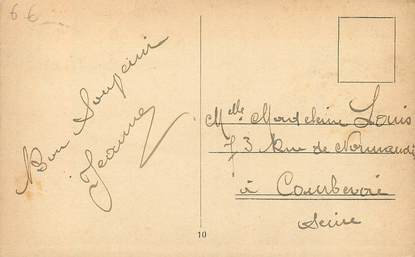 66
Bon Souvenir
Jeanne
Melle Madeleine Louis
73 Rue de Normandie
à Courbevoie
Seine
10